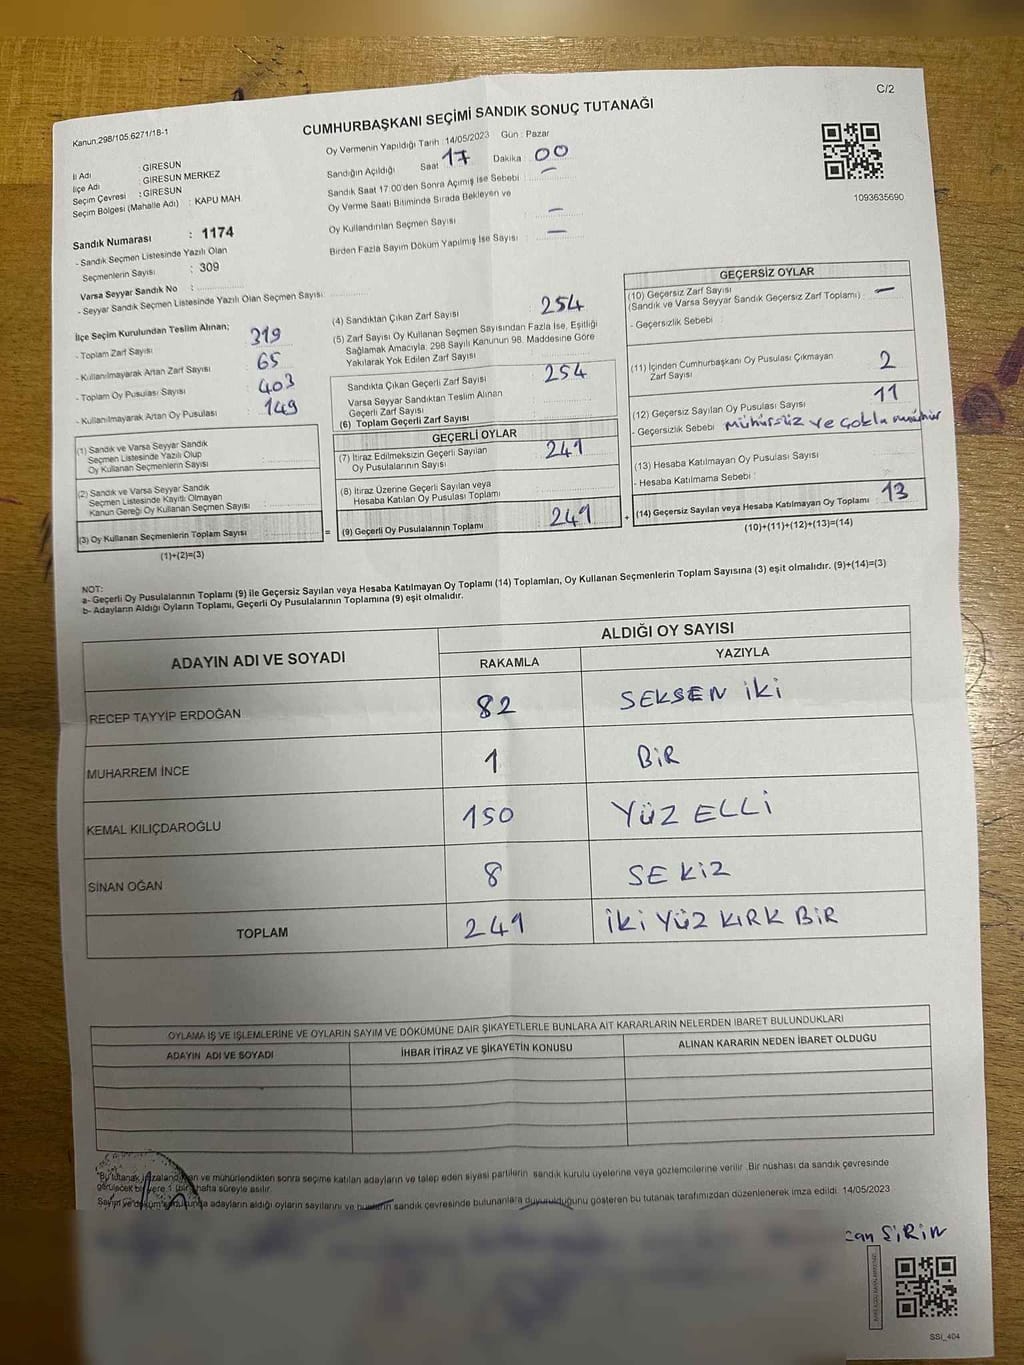 C/2
Kanun:298/105.6271/18-1
CUMHURBAŞKANI SEÇİMİ SANDIK SONUÇ TUTANAĞI
1093635690
İl Adı : GİRESUN
İlçe Adı : GİRESUN MERKEZ
Seçim Çevresi : GİRESUN
Seçim Bölgesi (Mahalle Adı) : KAPU MAH
Sandık Numarası : 1174
- Sandık Seçmen Listesinde Yazılı Olan
Seçmenlerin Sayısı : 309
Varsa Seyyar Sandık No :
- Seyyar Sandık Seçmen Listesinde Yazılı Olan Seçmen Sayısı:
Oy Vermenin Yapıldığı Tarih :14/05/2023 Gün : Pazar
Sandığın Açıldığı Saat 17 Dakika 00
Sandık Saat 17:00'den Sonra Açımış İse Sebebi : –
Oy Verme Saati Bitiminde Sırada Bekleyen ve
Oy Kullandırılan Seçmen Sayısı : –
Birden Fazla Sayım Döküm Yapılmış İse Sayısı : –
İlçe Seçim Kurulundan Teslim Alınan;
- Toplam Zarf Sayısı 319
- Kullanılmayarak Artan Zarf Sayısı 65
- Toplam Oy Pusulası Sayısı 403
- Kullanılmayarak Artan Oy Pusulası 149
(1) Sandık ve Varsa Seyyar Sandık
Seçmen Listesinde Yazılı Olup
Oy Kullanan Seçmenlerin Sayısı :
(2) Sandık ve Varsa Seyyar Sandık
Seçmen Listesinde Kayıtlı Olmayan
Kanun Gereği Oy Kullanan Seçmen Sayısı :
(3) Oy Kullanan Seçmenlerin Toplam Sayısı
(1)+(2)=(3)
(4) Sandıktan Çıkan Zarf Sayısı 254
(5) Zarf Sayısı Oy Kullanan Seçmen Sayısından Fazla İse, Eşitliği
Sağlamak Amacıyla, 298 Sayılı Kanunun 98. Maddesine Göre
Yakılarak Yok Edilen Zarf Sayısı
Sandıkta Çıkan Geçerli Zarf Sayısı 254
Varsa Seyyar Sandıktan Teslim Alınan
Geçerli Zarf Sayısı
(6) Toplam Geçerli Zarf Sayısı
GEÇERLİ OYLAR
(7) İtiraz Edilmeksizin Geçerli Sayılan
Oy Pusulalarının Sayısı 241
(8) İtiraz Üzerine Geçerli Sayılan veya
Hesaba Katılan Oy Pusulası Toplamı
= (9) Geçerli Oy Pusulalarının Toplamı 241
GEÇERSİZ OYLAR
(10) Geçersiz Zarf Sayısı
(Sandık ve Varsa Seyyar Sandık Geçersiz Zarf Toplamı) : –
- Geçersizlik Sebebi :
(11) İçinden Cumhurbaşkanı Oy Pusulası Çıkmayan
Zarf Sayısı 2
(12) Geçersiz Sayılan Oy Pusulası Sayısı 11
- Geçersizlik Sebebi : mühürsüz ve çoklu mühür
(13) Hesaba Katılmayan Oy Pusulası Sayısı
- Hesaba Katılmama Sebebi :
+ (14) Geçersiz Sayılan veya Hesaba Katılmayan Oy Toplamı 13
(10)+(11)+(12)+(13)=(14)
NOT:
a- Geçerli Oy Pusulalarının Toplamı (9) ile Geçersiz Sayılan veya Hesaba Katılmayan Oy Toplamı (14) Toplamları, Oy Kullanan Seçmenlerin Toplam Sayısına (3) eşit olmalıdır. (9)+(14)=(3)
b- Adayların Aldığı Oyların Toplamı, Geçerli Oy Pusulalarının Toplamına (9) eşit olmalıdır.
ADAYIN ADI VE SOYADI ALDIĞI OY SAYISI
RAKAMLA YAZIYLA
RECEP TAYYİP ERDOĞAN 82 SEKSEN İKİ
MUHARREM İNCE 1 BİR
KEMAL KILIÇDAROĞLU 150 YÜZ ELLİ
SİNAN OĞAN 8 SEKİZ
TOPLAM 241 İKİ YÜZ KIRK BİR
OYLAMA İŞ VE İŞLEMLERİNE VE OYLARIN SAYIM VE DÖKÜMÜNE DAİR ŞİKAYETLERLE BUNLARA AİT KARARLARIN NELERDEN İBARET BULUNDUKLARI
ADAYIN ADI VE SOYADI İHBAR İTİRAZ VE ŞİKAYETİN KONUSU ALINAN KARARIN NEDEN İBARET OLDUĞU
Bu tutanak ve mühürlendikten sonra seçime katılan adayların ve talep eden siyasi partilerin sandık kurulu üyelerine veya gözlemcilerine verilir. Bir nüshası da sandık çevresinde
görülecek bir yere 1 (bir) hafta süreyle asılır.
Sayım ve döküm adayların aldığı oyların sayılarını ve bunların sandık çevresinde bulunanlara duyurulduğunu gösteren bu tutanak tarafımızdan düzenlenerek imza edildi. 14/05/2023
can ŞİRİN
SSİ_404